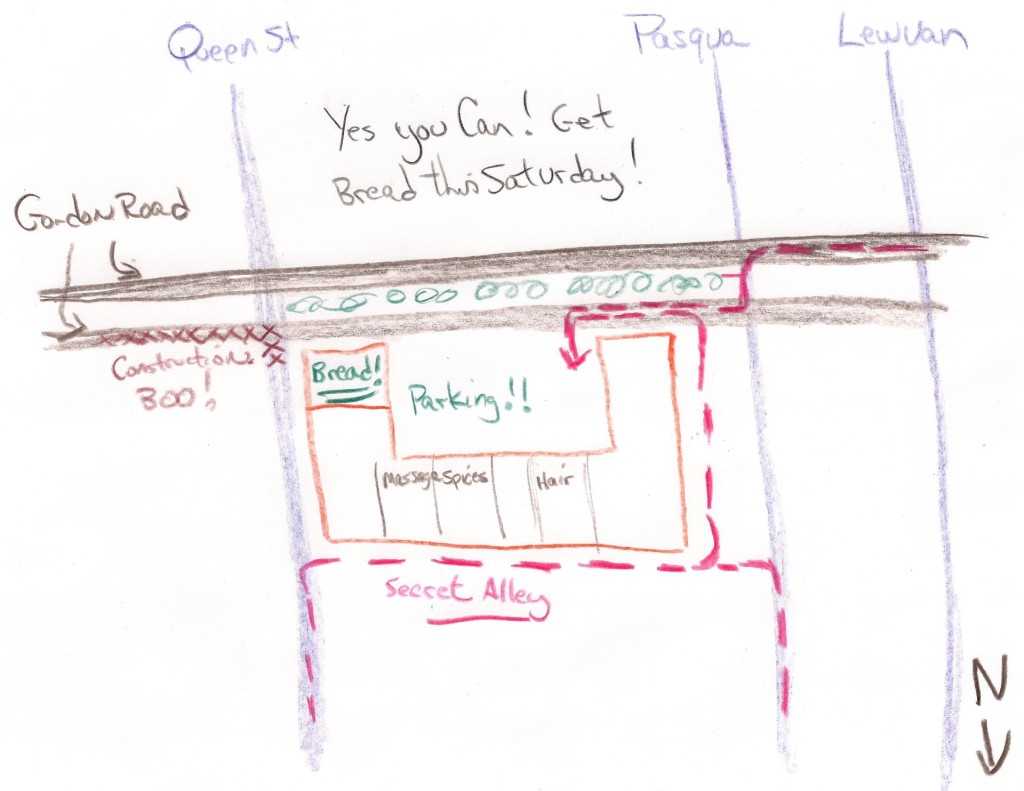 Queen St
Pasqua
Lewvan
Yes you Can! Get
Bread this Saturday!
Gordon Road
Construction.
BOO!
Bread!
Parking!!
Massage
Spices
Hair
Secret Alley
N